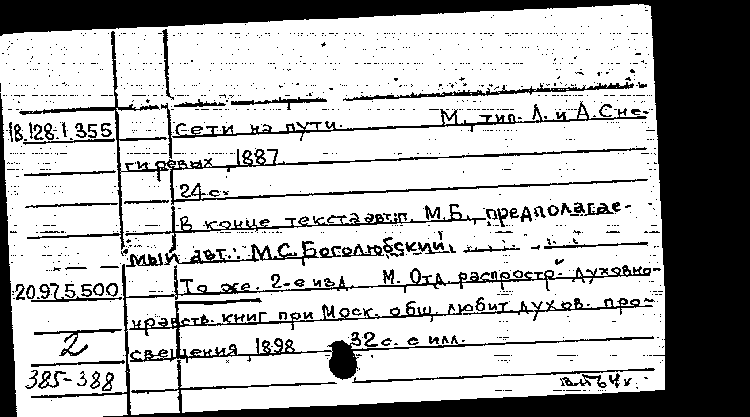 18.128.1.355 Сети на пути. М., тип. Л. и А. Сне-
гиревых, 1887.
24 с.
В конце текста авт.: М.Б., предполагае-
мый авт.: М.С. Боголюбский.
20.97.5.500 То же. 2-е изд. М. Отд. распростр. духовно-
нравств. книг при Моск. общ. любит. духов. про-
2 свещения, 1898 32 с. с илл.
385-388